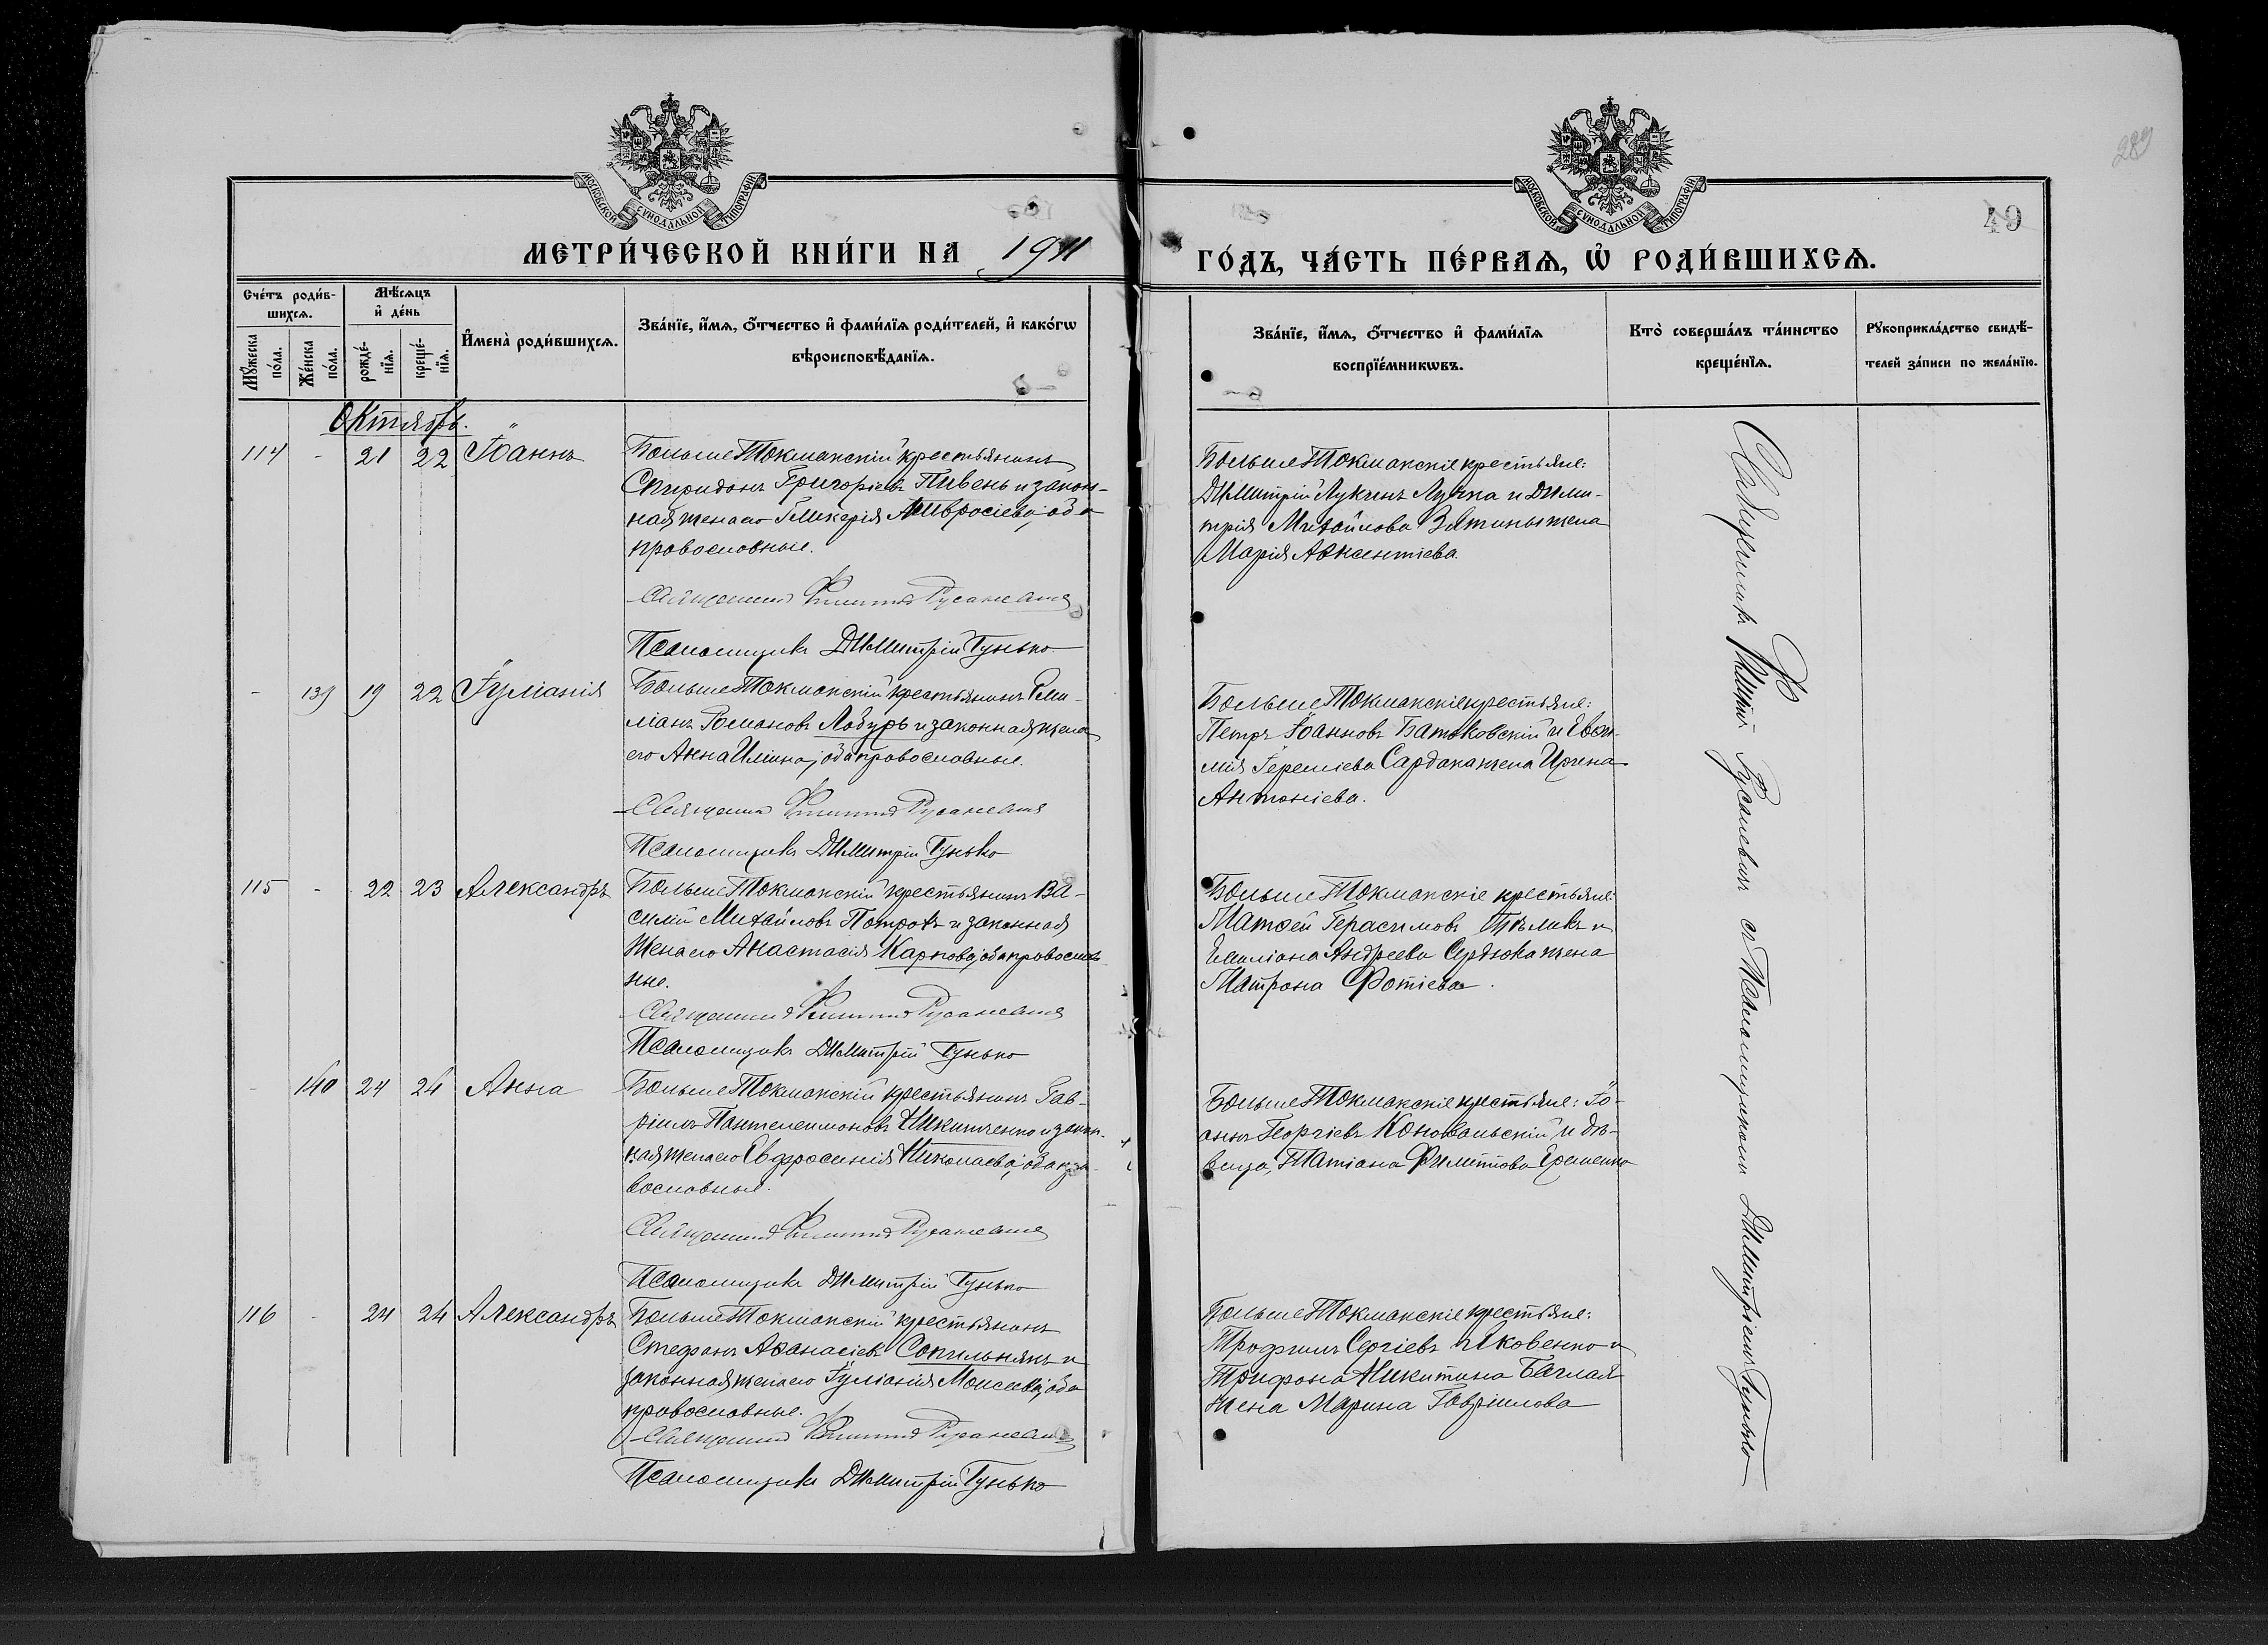 289
49
МОСКОВСКОЙ СѴНОДАЛЬНОЙ ТИПОГРАФІИ
МОСКОВСКОЙ СѴНОДАЛЬНОЙ ТИПОГРАФІИ
МЕТРИ́ЧЕСКОЙ КНИ́ГИ НА 1911
ГО́ДЪ, ЧА́СТЬ ПЕ́РВАѦ, Ѡ҆ РОДИ́ВШИХСѦ.
Сче́тъ роди́в-
шихсѧ.
Мꙋ́жеска по́ла.
Же́нска по́ла.
Мѣ́сѧцъ и҆ де́нь
рожде́-нїѧ.
креще́-нїѧ.
И҆мена̀ роди́вшихсѧ.
Зва́нїе, и҆́мѧ, ѻ҆́тчество и҆ фами́лїѧ роди́телей, и҆ како́гѡ
вѣроисповѣ́данїѧ.
Зва́нїе, и҆́мѧ, ѻ҆́тчество и҆ фами́лїѧ
воспрїе́мникѡвъ.
Кто̀ соверша́лъ та́инство
креще́нїѧ.
Рꙋкоприкла́дство свидѣ́-
телей за́писи по жела́нїю.
Октябрь.
114 - 21 22 Іоаннъ
БольшеТокмакскій крестьянинъ
Спиридонъ Григоріевъ Пивень и закон-
ная жена его Гликерія Амвросіева; оба
православные.
Священникъ Филиппъ Русаневичъ
Псаломщикъ Димитрій Гунько
БольшеТокмакскіе крестьяне:
Димитрій Лукинъ Лучка и Дими-
трія Михайлова Вятины жена
Марія Авксентіева.
- 139 19 22 Іуліанія
БольшеТокмакскій крестьянинъ Еми-
ліанъ Романовъ Лабурь и законная жена
его Анна Иліина; оба православные.
Священникъ Филиппъ Русаневичъ
Псаломщикъ Димитрій Гунько
БольшеТокмакскіе крестьяне:
Петръ Іоанновъ Батаковскій и Евѳи-
мія Іереміева Сардака жена Ирина
Антоніева.
115 - 22 23 Александръ
БольшеТокмакскій крестьянинъ Ва-
силій Михайловъ Потрохъ и законная
жена его Анастасія Карпова; оба православ-
ные.
Священникъ Филиппъ Русаневичъ
Псаломщикъ Димитрій Гунько
БольшеТокмакскіе крестьяне:
Матѳей Герасимовъ и
Емиліана Андреева Сердюка жена
Матрона Фотіева.
- 140 24 24 Анна
БольшеТокмакскій крестьянинъ Гав-
ріилъ Пантелеимоновъ Никитченко и закон-
ная жена его Евфросинія Николаева; оба пра-
вославные.
Священникъ Филиппъ Русаневичъ
Псаломщикъ Димитрій Гунько
БольшеТокмакскіе крестьяне: Іо-
аннъ Георгіевъ Коновальскій и дѣ-
вица, Татіана Филиппова Еременко
116 - 24 24 Александръ
БольшеТокмакскій крестьянинъ
Стефанъ Аѳанасіевъ Сопильнякъ и
законная жена его Іуліанія Моисеева; оба
православные.
Священникъ Филиппъ Русаневичъ
Псаломщикъ Димитрій Гунько
БольшеТокмакскіе крестьяне:
Трофимъ Сергіевъ Яковенко и
Трифона Никитина Баглая
жена Марина Гавріилова
Священникъ Филиппъ Русаневичъ съ Псаломщикомъ Димитріемъ Гунько